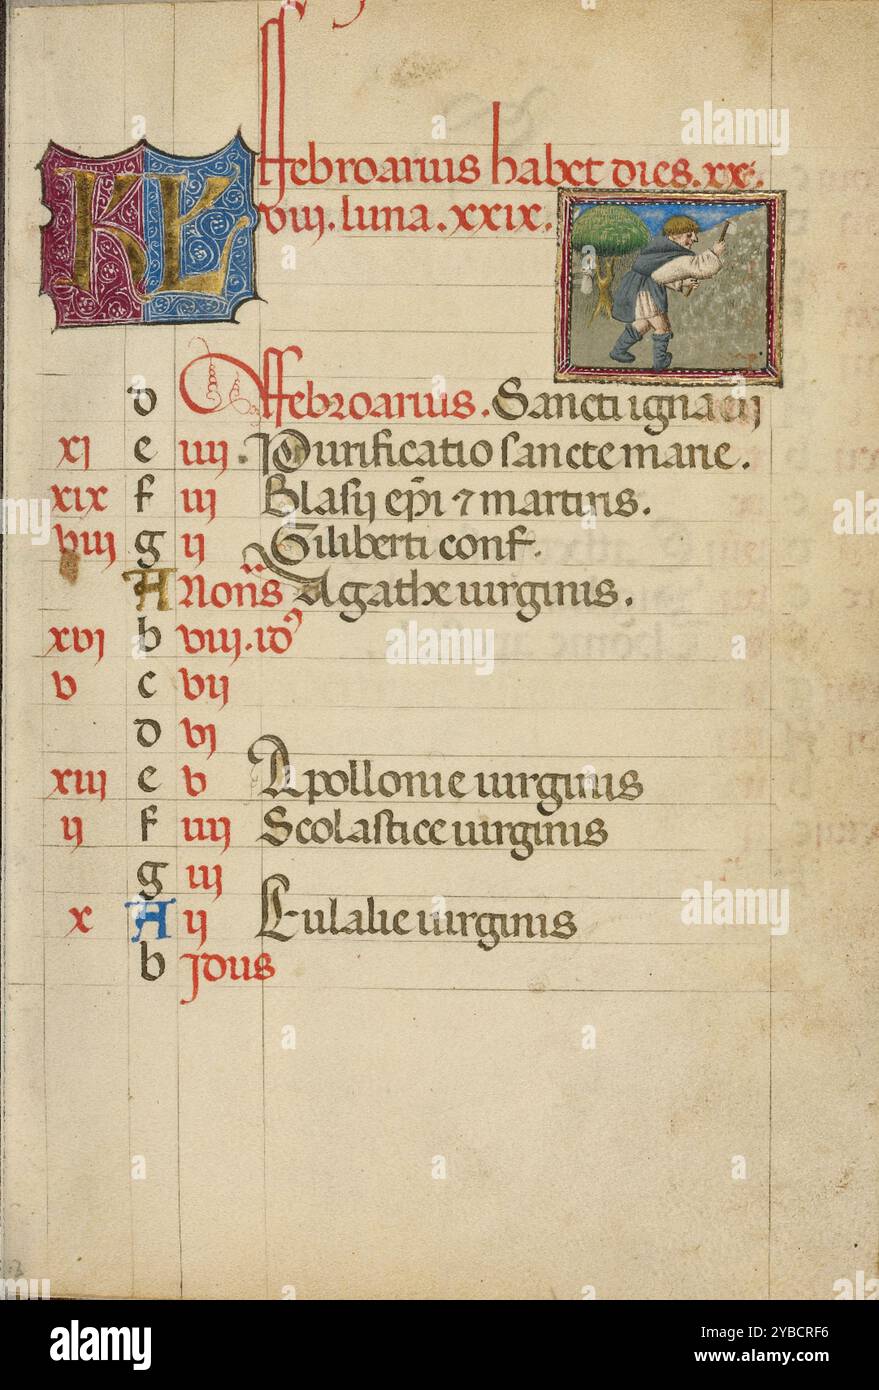 KL ffebroarius habet dies. xx.
viii. luna. xxix.
d ffebroarius. Sancti ignacii
xj e iiij. Purificatio sancte marie.
xix f iij Blasij epi ⁊ martiris.
viij g ij Giliberti conf.
A Nonis Agathe uirginis.
xvj b viij. id9
v c vij
d vj
xiij e v Apollonie uirginis
ij f iiij Scolastice uirginis
g iij
x A ij Eulalie uirginis
b jdus
alamy
Image ID: 2YBCRF6
www.alamy.com